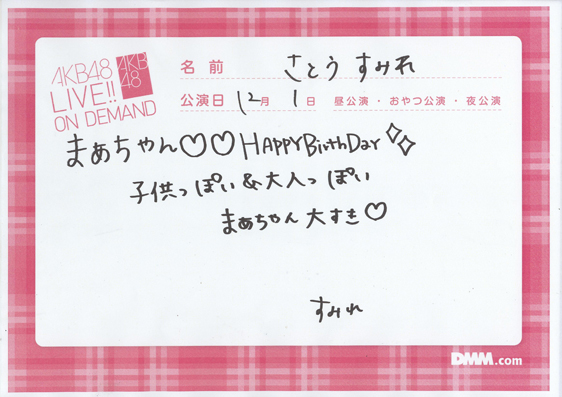 AKB48
LIVE!!
ON DEMAND
AKB
48
名前 さとうすみれ
公演日 12月 1日 昼公演・おやつ公演・夜公演
まぁちゃん♡♡HAPPY BirthDay
子供っぽい&大人っぽい
まぁちゃん大すき♡
すみれ
DMM.com